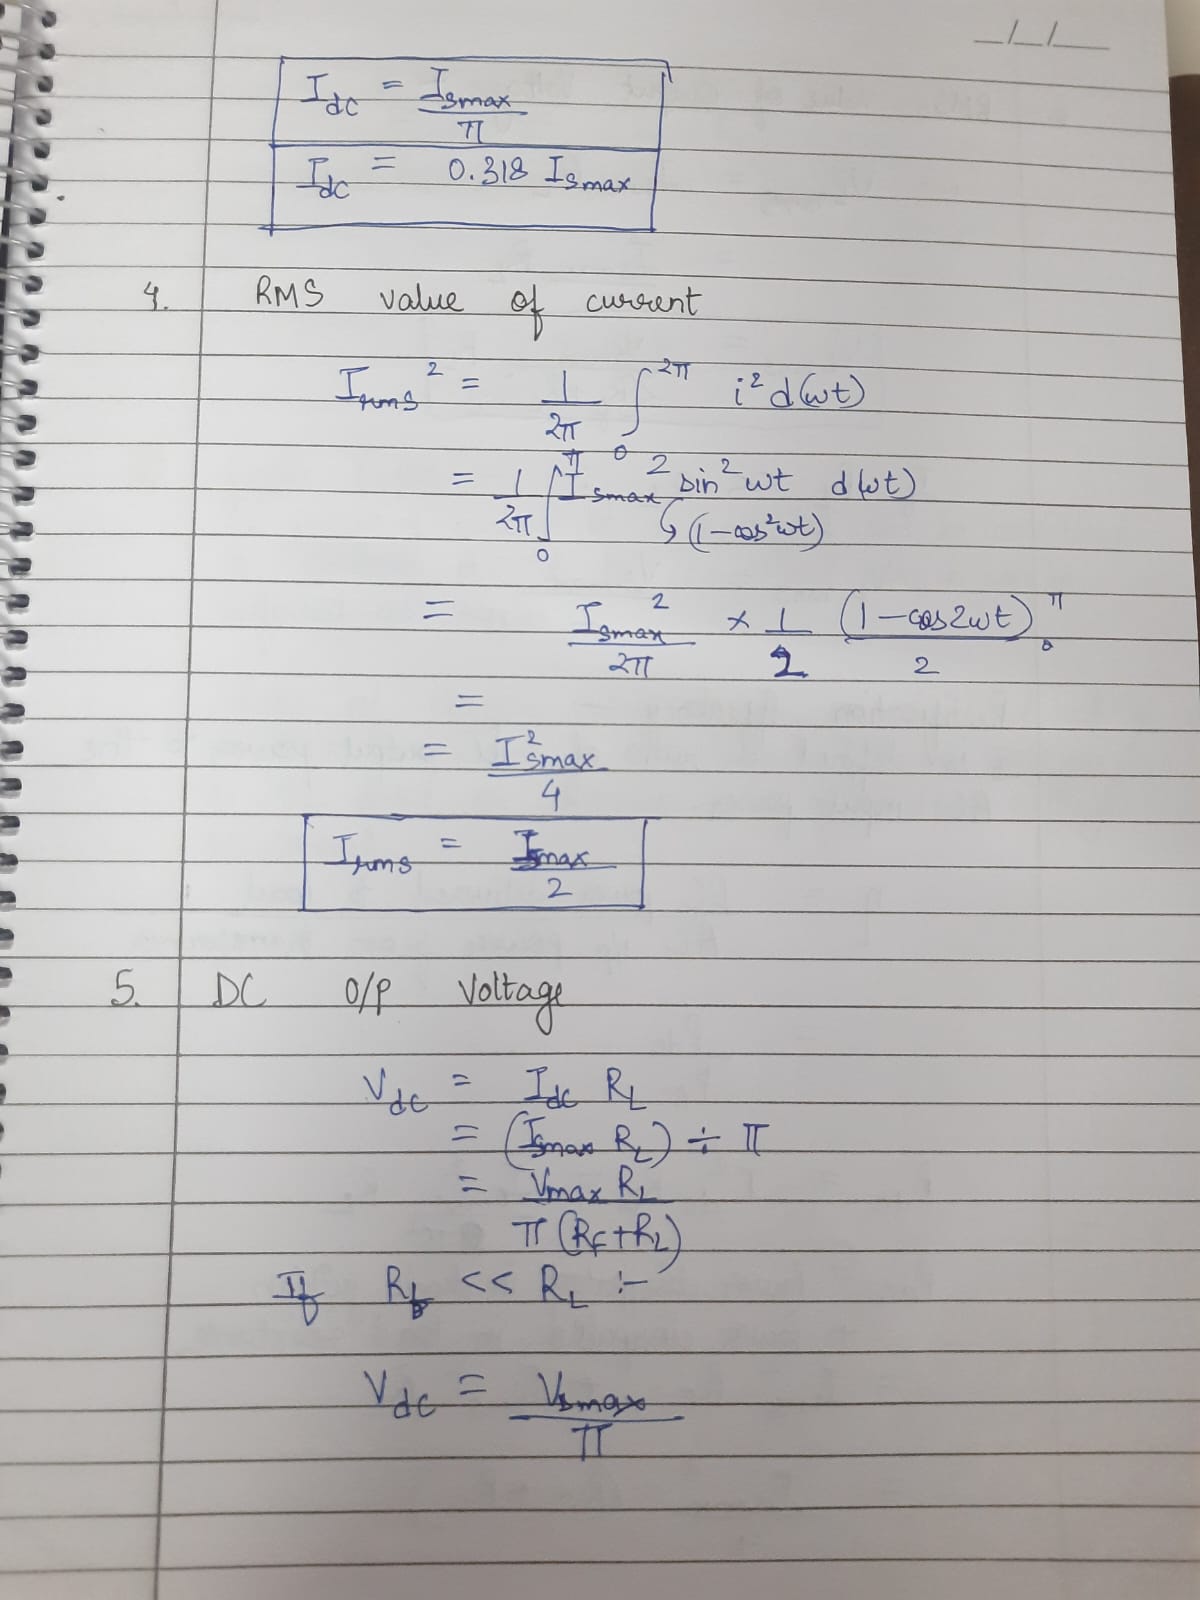 _/_/__
I_dc = I_smax / π
I_dc = 0.318 I_smax
4. RMS value of current
I_rms² = 1/2π ∫₀^2π i² d(ωt)
= 1/2π ∫₀^π I_smax² sin²ωt d(ωt)
↳ (1-cos²ωt)
= I_smax²/2π × 1/2 (1-cos2ωt)/2 |₀^π
=
= I²_smax / 4
I_rms = I_smax / 2
5. DC O/P Voltage
V_dc = I_dc R_L
= (I_smax R_L) ÷ π
= V_max R_L / π(R_F+R_L)
If R_f << R_L :-
V_dc = V_smax / π